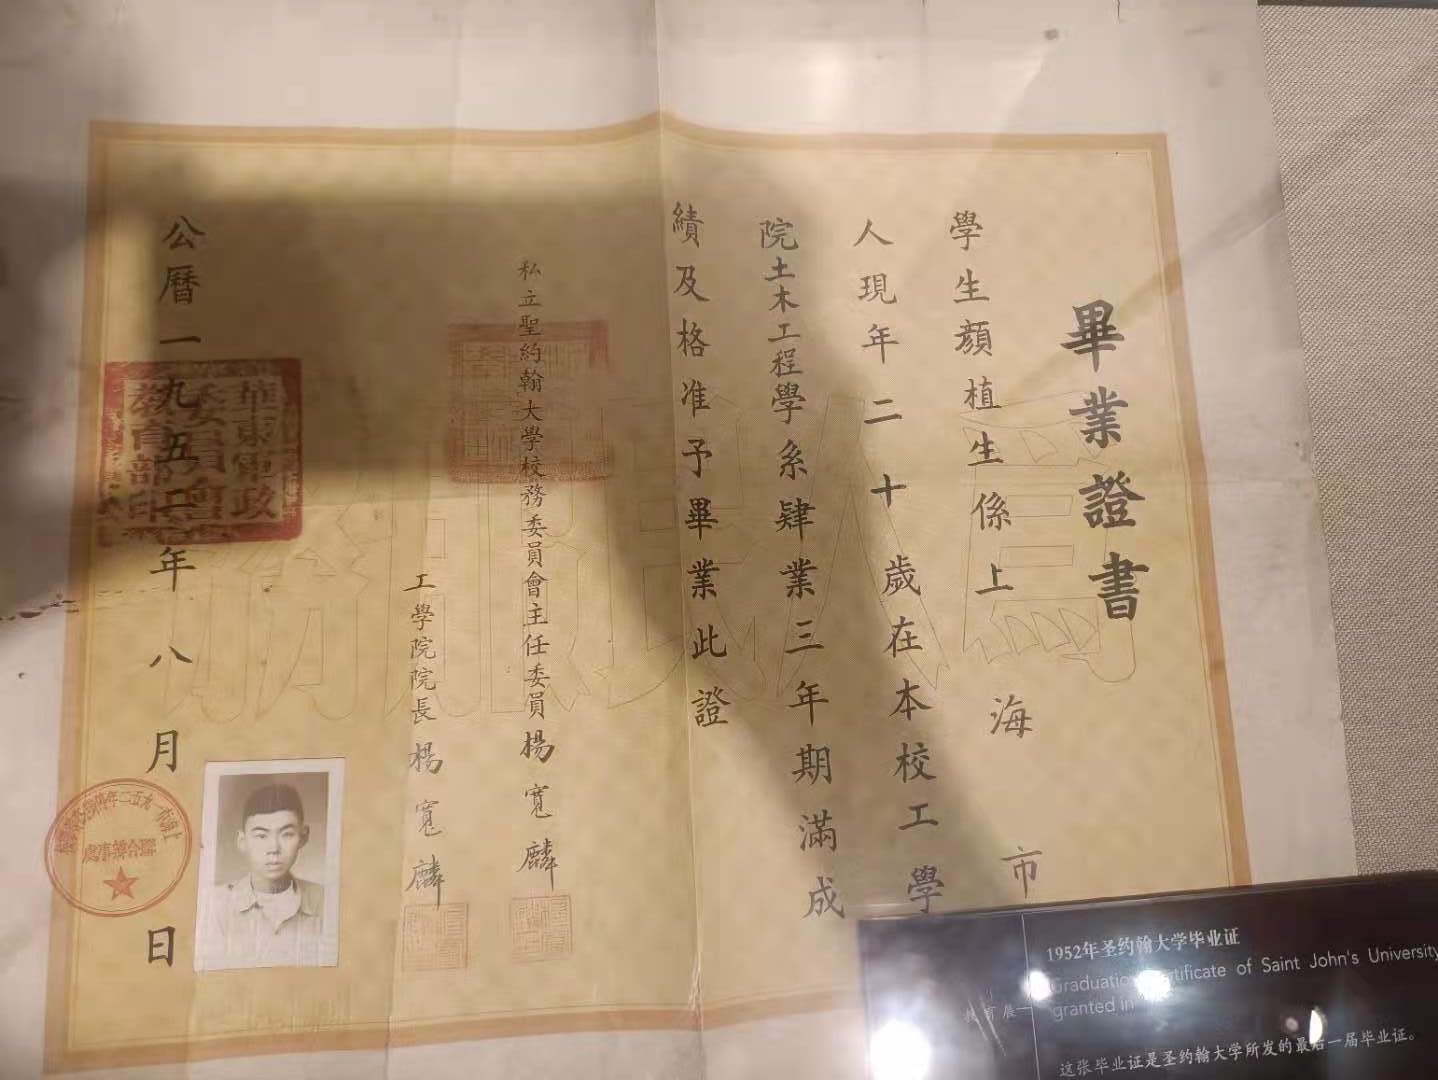 畢業證書
學生顏植生係上海市
人現年二十歲在本校工學
院土木工程學系肄業三年期滿成
績及格准予畢業此證
私立聖約翰大學校務委員會主任委員楊寬麟
工學院院長楊寬麟
公曆一九五二年八月日
華東軍政
委員會
教育部印
聯合辦事處
為人民服務
1952年圣约翰大学毕业证
Graduation Certificate of Saint John's University
granted in
教育展
这张毕业证是圣约翰大学所发的最后一届毕业证。